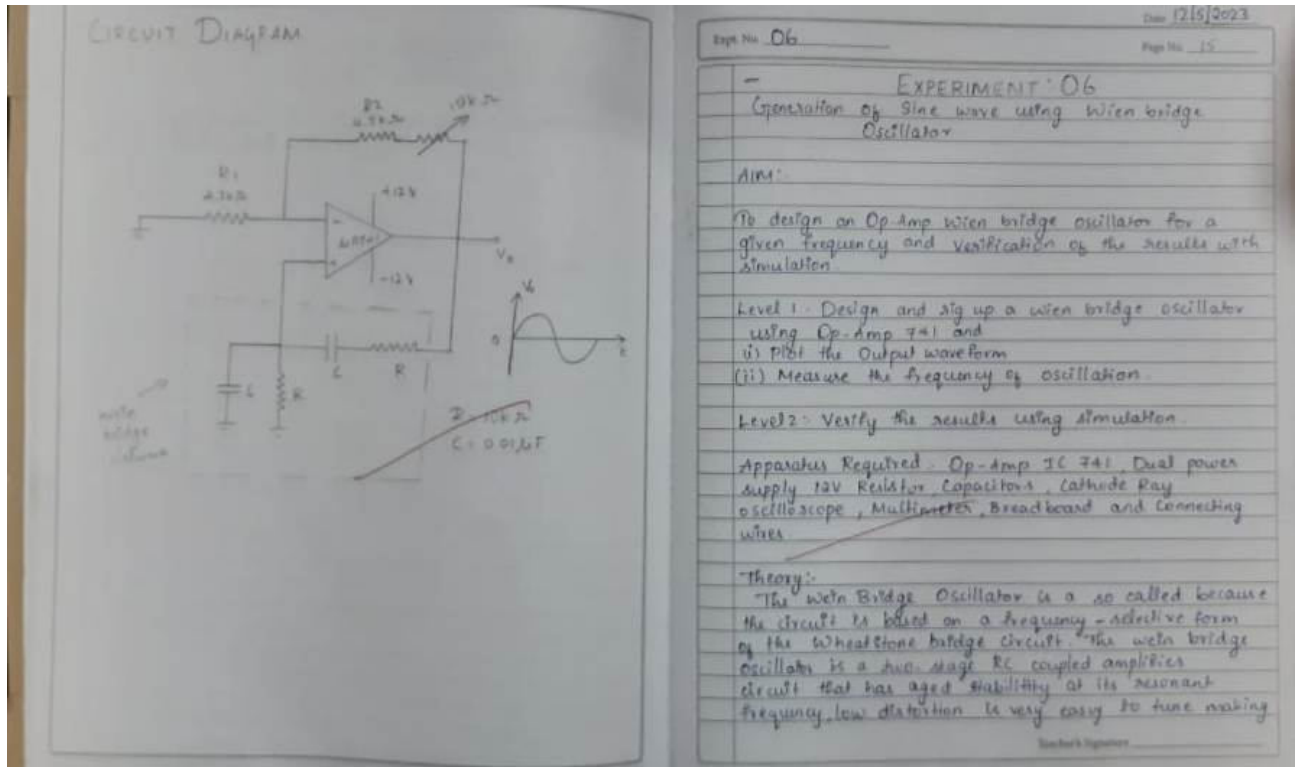 CIRCUIT DIAGRAM
R2
10k Ω
R1
+12V
-
+
-12V
Vo
Vo
0
t
C
R
C
R
bridge
10k Ω
C = 0.01μF
Date 12/5/2023
Expt. No. 06
Page No. 15
EXPERIMENT: 06
Generation of Sine wave using Wien bridge
Oscillator
AIM:-
To design an Op-Amp wien bridge oscillator for a
given frequency and verification of the results with
simulation.
Level 1: Design and rig up a wien bridge oscillator
using Op-Amp 741 and
(i) Plot the Output waveform
(ii) Measure the frequency of oscillation.
Level 2: Verify the results using simulation.
Apparatus Required: Op-Amp IC 741, Dual power
supply 12V Resistor, Capacitors, Cathode Ray
oscilloscope, Multimeter, Breadboard and Connecting
wires.
Theory:-
The Wein Bridge Oscillator is a so called because
the circuit is based on a frequency-selective form
of the Wheatstone bridge circuit. The wein bridge
oscillator is a two-stage RC coupled amplifier
circuit that has aged stability at its resonant
frequency, low distortion is very easy to tune making
Teacher's Signature